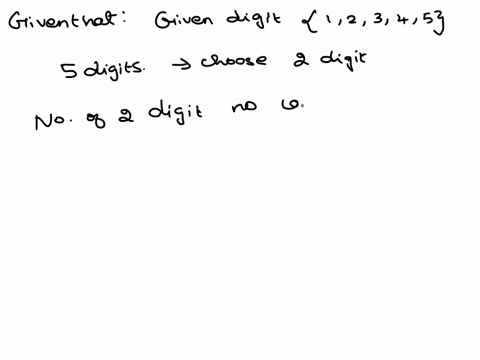 Given that: Given digit {1, 2, 3, 4, 5}
5 digits. → choose 2 digit
No. of 2 digit no